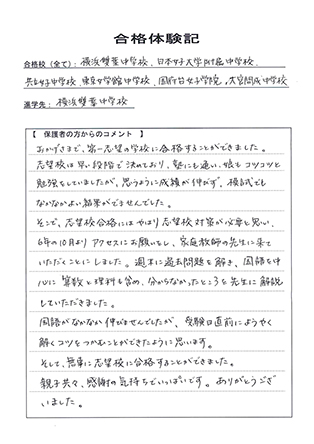 合格体験記
合格校（全て）： 横浜雙葉中学校、日本女子大学附属中学校
共立女子中学校、東京女学館中学校、国府台女子学院、大宮開成中学校
進学先： 横浜雙葉中学校
【　保護者の方からのコメント　】
おかげさまで、第一志望の学校に合格することができました。
志望校は早い段階で決めており、塾にも通い、娘もコツコツと
勉強をしていましたが、思うように成績が伸びず、模試でも
なかなかよい結果がでませんでした。
そこで、志望校合格にはやはり志望校対策が必要と思い、
6年の10月よりアクセスにお願いをし、家庭教師の先生に来て
いただくことにしました。週末に過去問題を解き、国語を中
心に算数と理科も含め、分からなかったところを先生に解説
していただきました。
国語がなかなか伸びませんでしたが、受験日直前にようやく
解くコツをつかむことができたように思います。
そして、無事に志望校に合格することができました。
親子共々、感謝の気持ちでいっぱいです。ありがとうござ
いました。